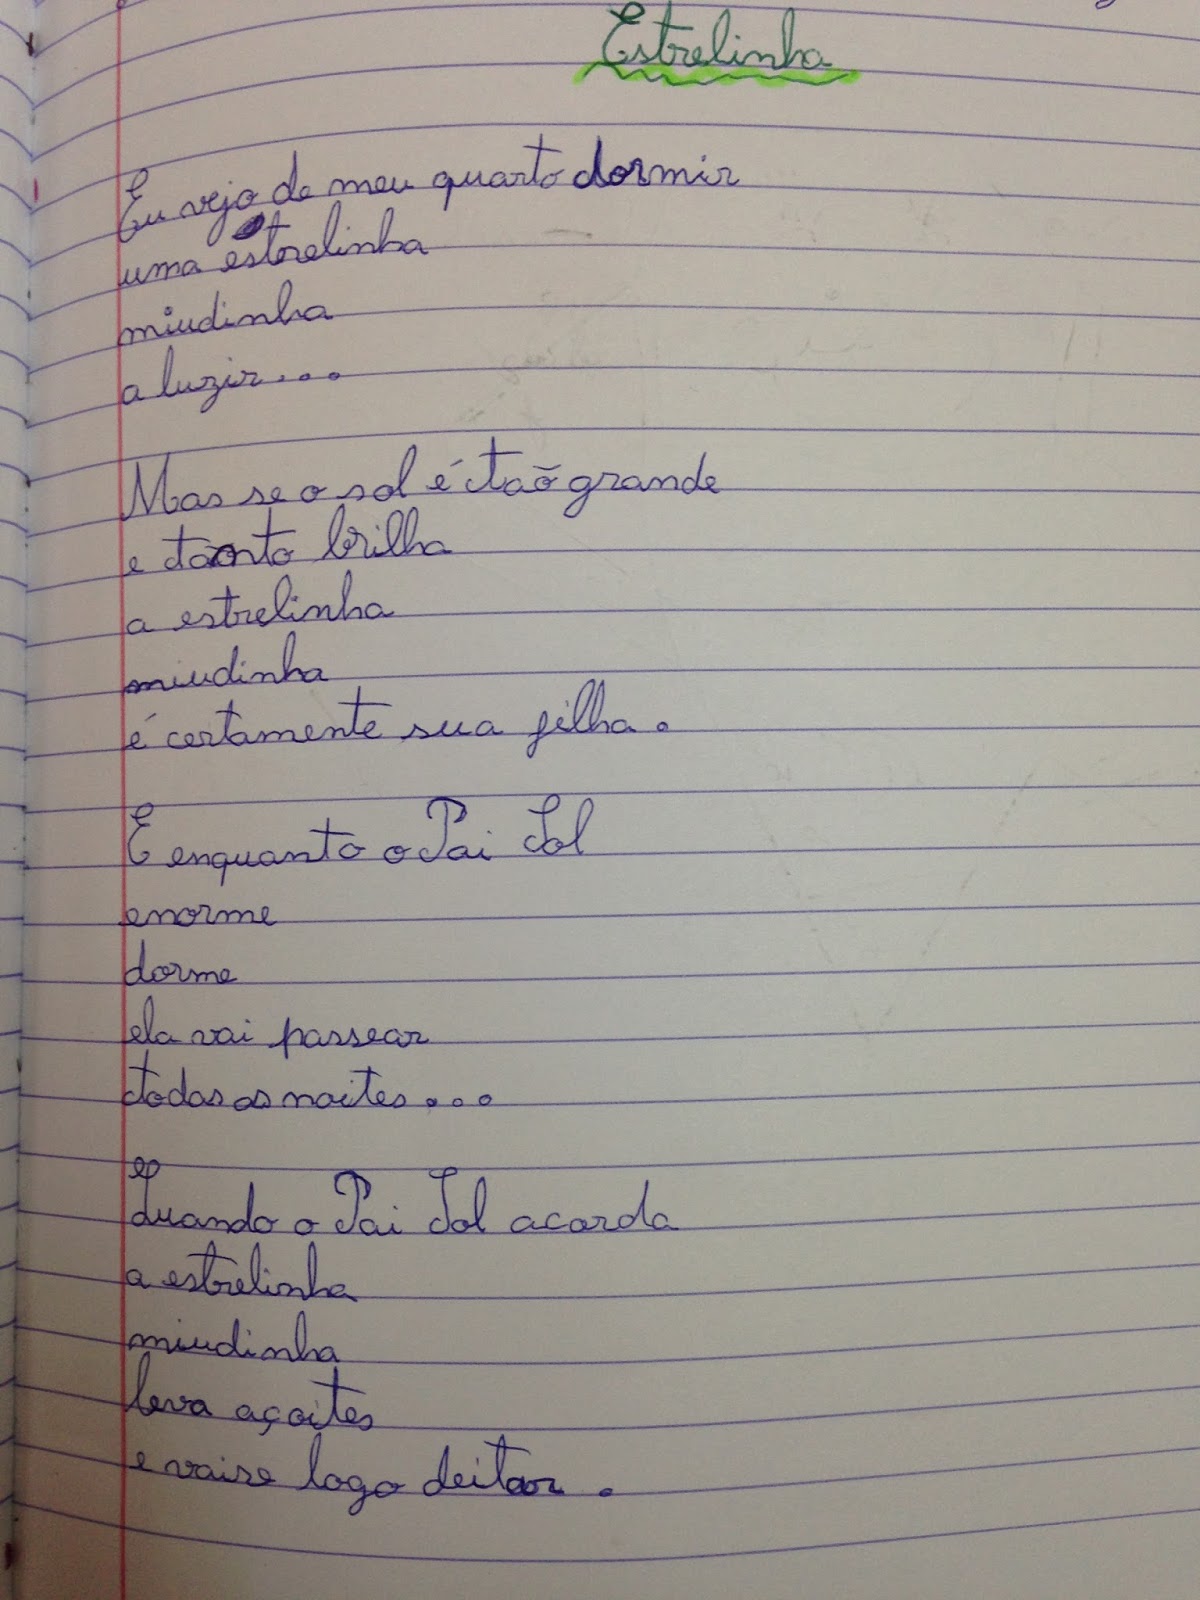 Estrelinha
Eu vejo de meu quarto dormir
uma estrelinha
miudinha
a luzir...
Mas se o sol é tão grande
e tanto brilha
a estrelinha
miudinha
é certamente sua filha.
E enquanto o Pai Sol
enorme
dorme
ela vai passear
todas as noites...
Quando o Pai Sol acorda
a estrelinha
miudinha
leva açoites
e vaise logo deitar.